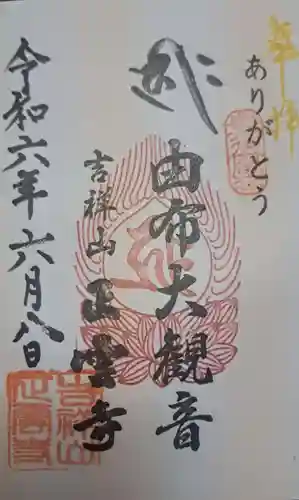 奉拝
ありがとう
由布大観音
吉祥山 正雲寺
令和六年 六月八日